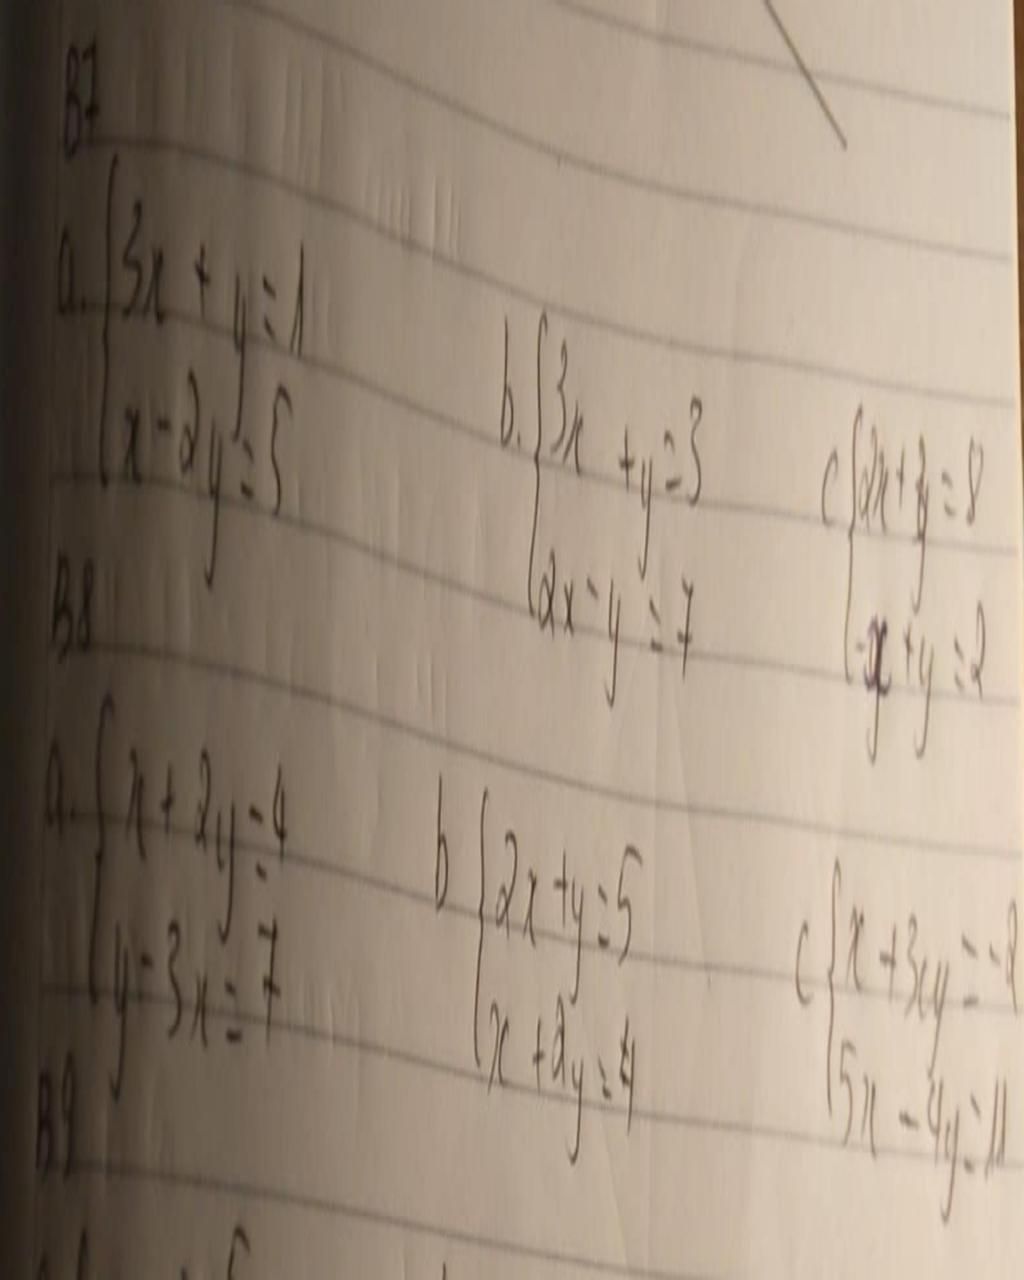 B7
a. { 3x + y = 1
x - 2y = 5
b. { 3x + y = 3
2x - y = 7
c { 2x + 3y = 8
y = 2
B8
a. { x + 2y = 4
y - 3x = 7
b { 2x + y = 5
x + 2y = 4
c { x + 3xy =
5x - 4y = 11
B9